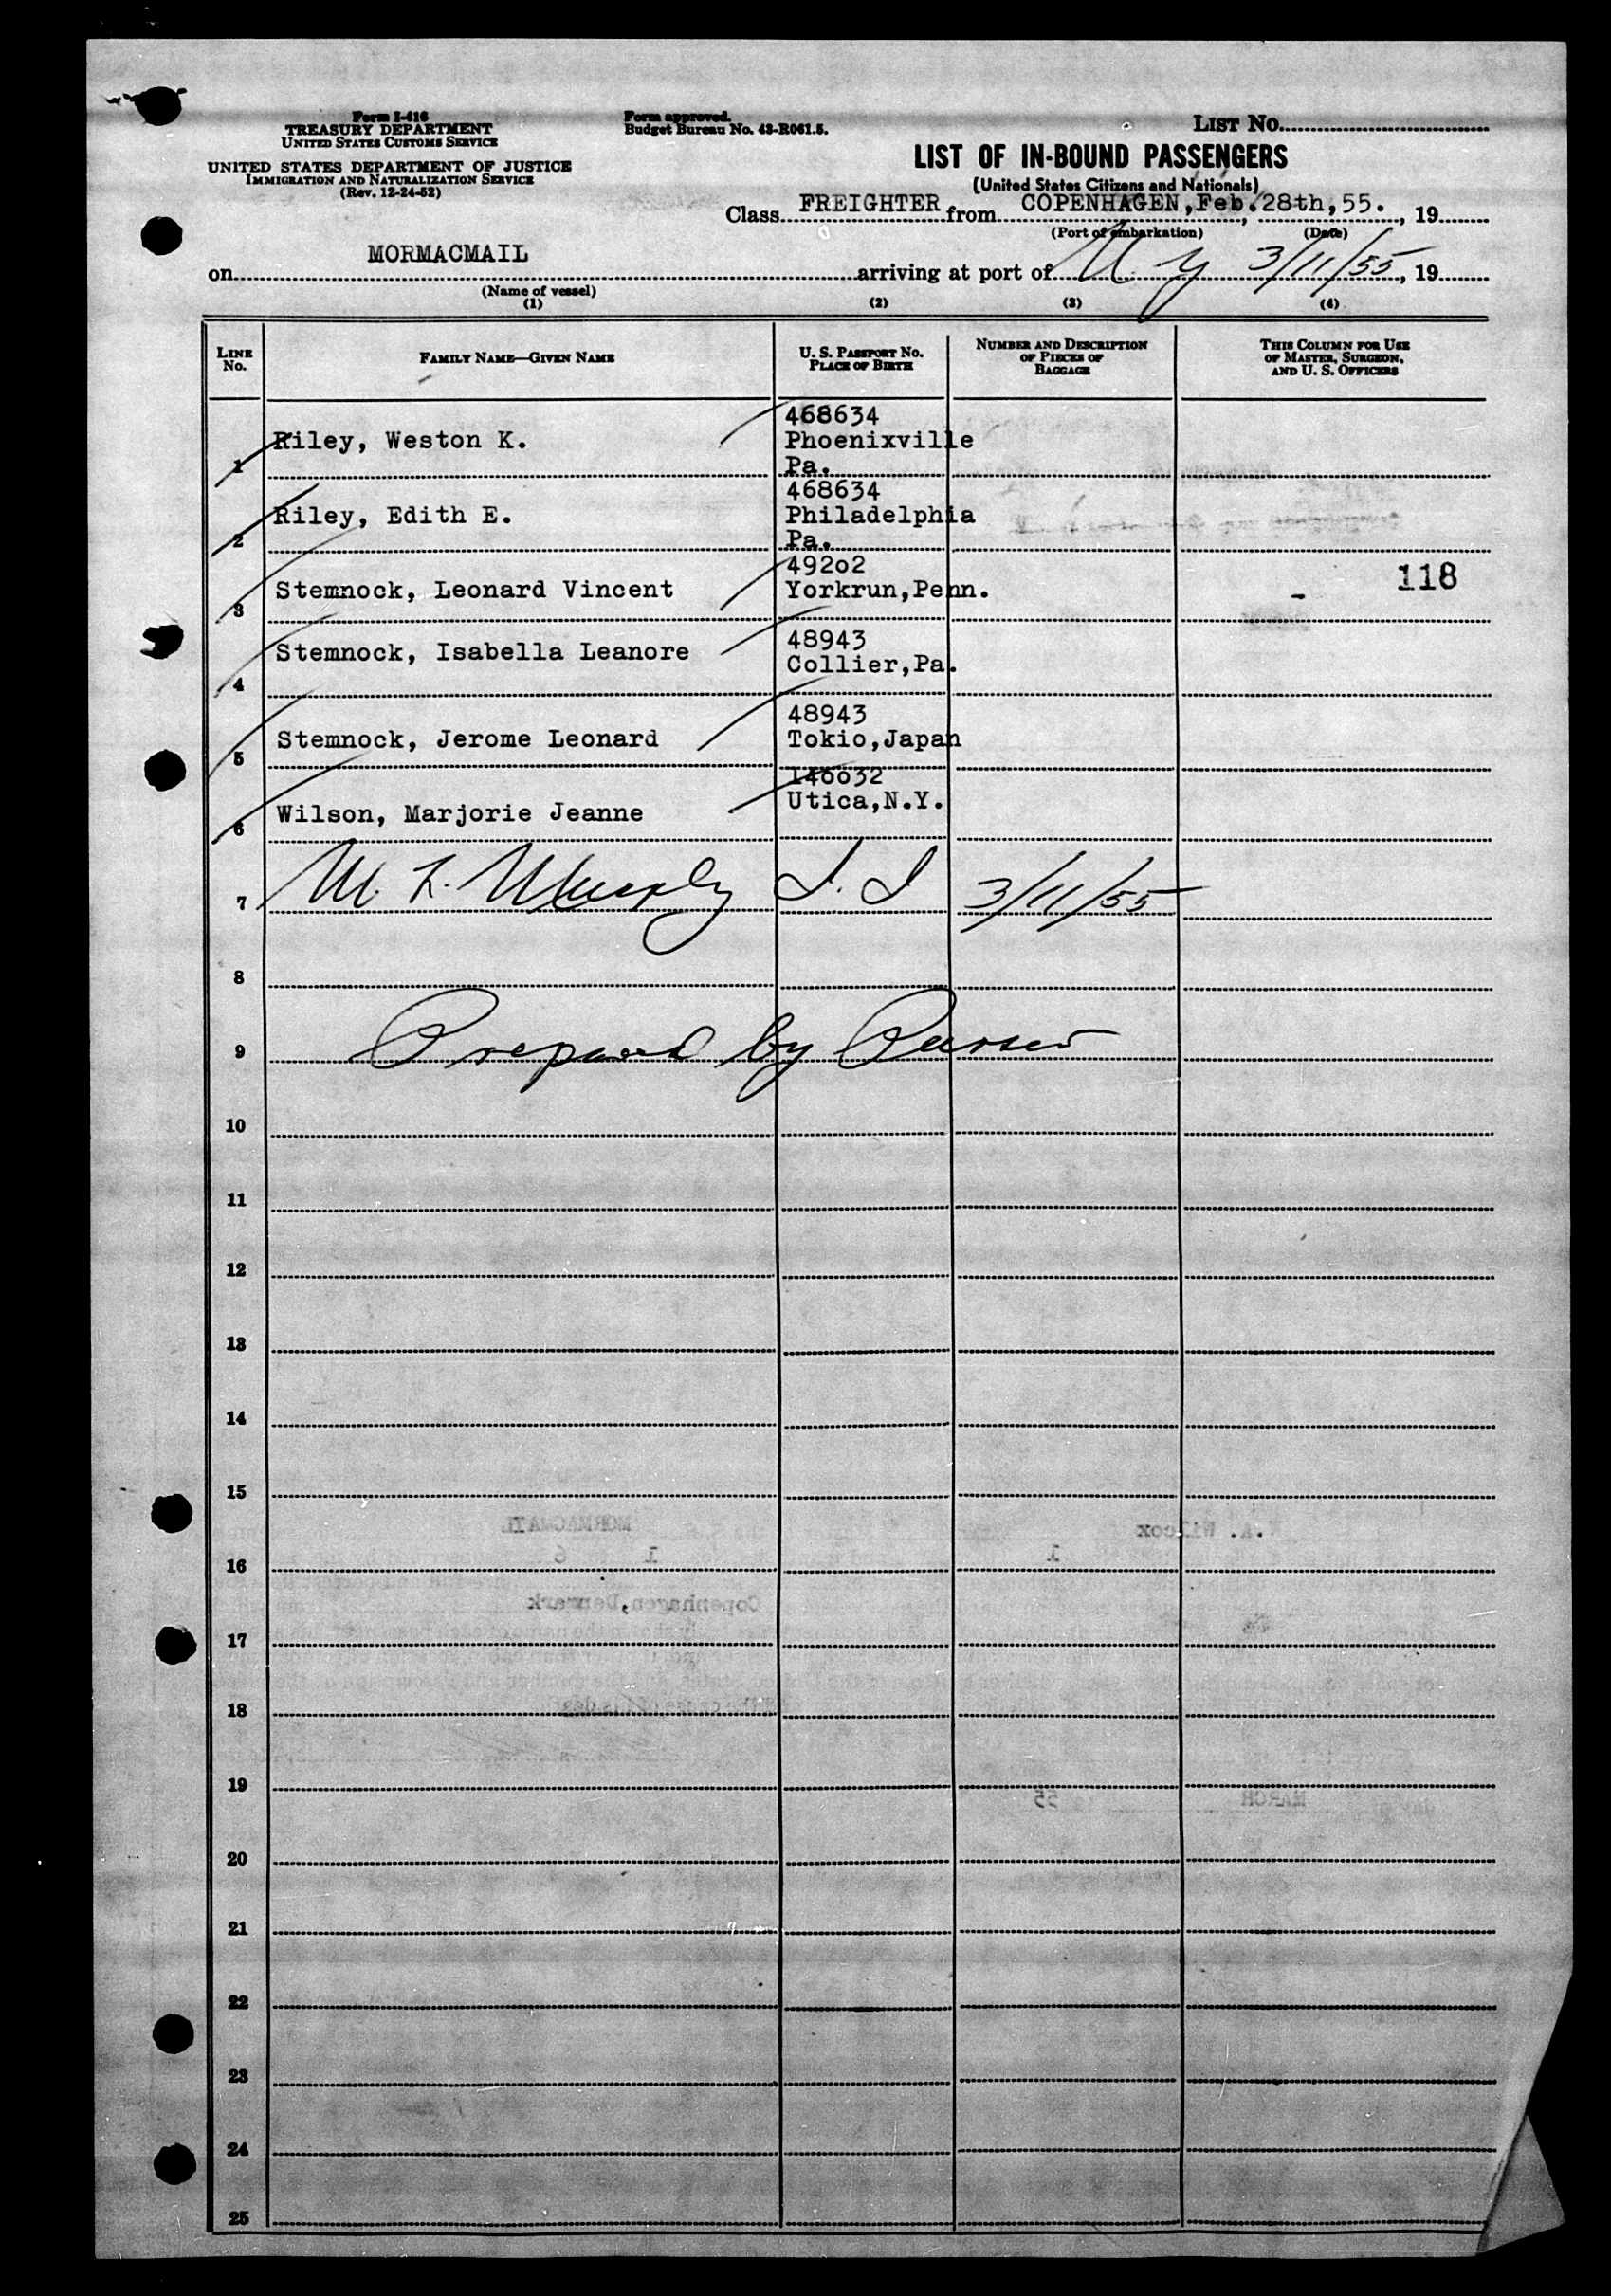 Form I-416
TREASURY DEPARTMENT
UNITED STATES CUSTOMS SERVICE
UNITED STATES DEPARTMENT OF JUSTICE
IMMIGRATION AND NATURALIZATION SERVICE
(Rev. 12-24-52)
Form approved.
Budget Bureau No. 43-R061.5.
LIST No.
LIST OF IN-BOUND PASSENGERS
(United States Citizens and Nationals)
Class FREIGHTER from COPENHAGEN, Feb. 28th, 55., 19
(Port of embarkation) (Date)
on MORMACMAIL arriving at port of N Y 3/11/55, 19
(Name of vessel)
(1) (2) (3) (4)
LINE No. FAMILY NAME—GIVEN NAME U. S. PASSPORT No. PLACE OF BIRTH NUMBER AND DESCRIPTION OF PIECES OF BAGGAGE THIS COLUMN FOR USE OF MASTER, SURGEON, AND U. S. OFFICERS
468634
1 Riley, Weston K. Phoenixville
Pa.
468634
2 Riley, Edith E. Philadelphia
Pa.
49202
3 Stemnock, Leonard Vincent Yorkrun,Penn. - 118
48943
4 Stemnock, Isabella Leanore Collier,Pa.
48943
5 Stemnock, Jerome Leonard Tokio,Japan
6 Wilson, Marjorie Jeanne Utica,N.Y.
7 M. L. Murphy I. I 3/11/55
8
9 Prepared by Purser
10
11
12
13
14
15
16
17
18
19
20
21
22
23
24
25
MORMACMAIL
Wilcox
1 6 1
Copenhagen,Denmark
MARCH 55